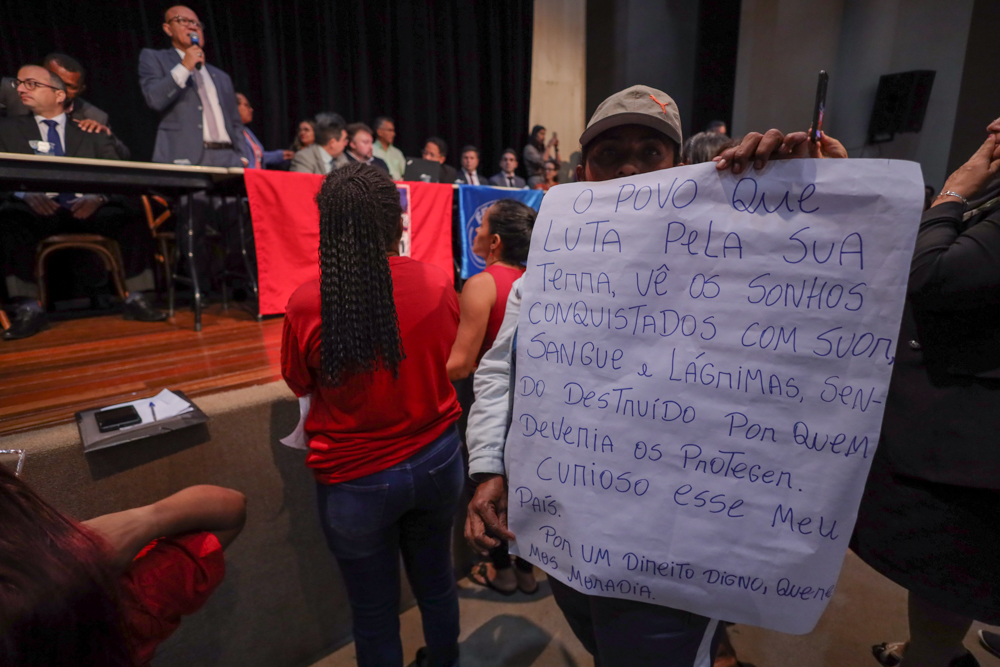 O POVO QUE
LUTA PELA SUA
TERRA, VÊ OS SONHOS
CONQUISTADOS COM SUOR,
SANGUE E LÁGRIMAS, SEN-
DO DESTRUÍDO POR QUEM
DEVERIA OS PROTEGER.
CURIOSO ESSE MEU
PAÍS.
POR UM DIREITO DIGNO, QUERE
MOS MORADIA.